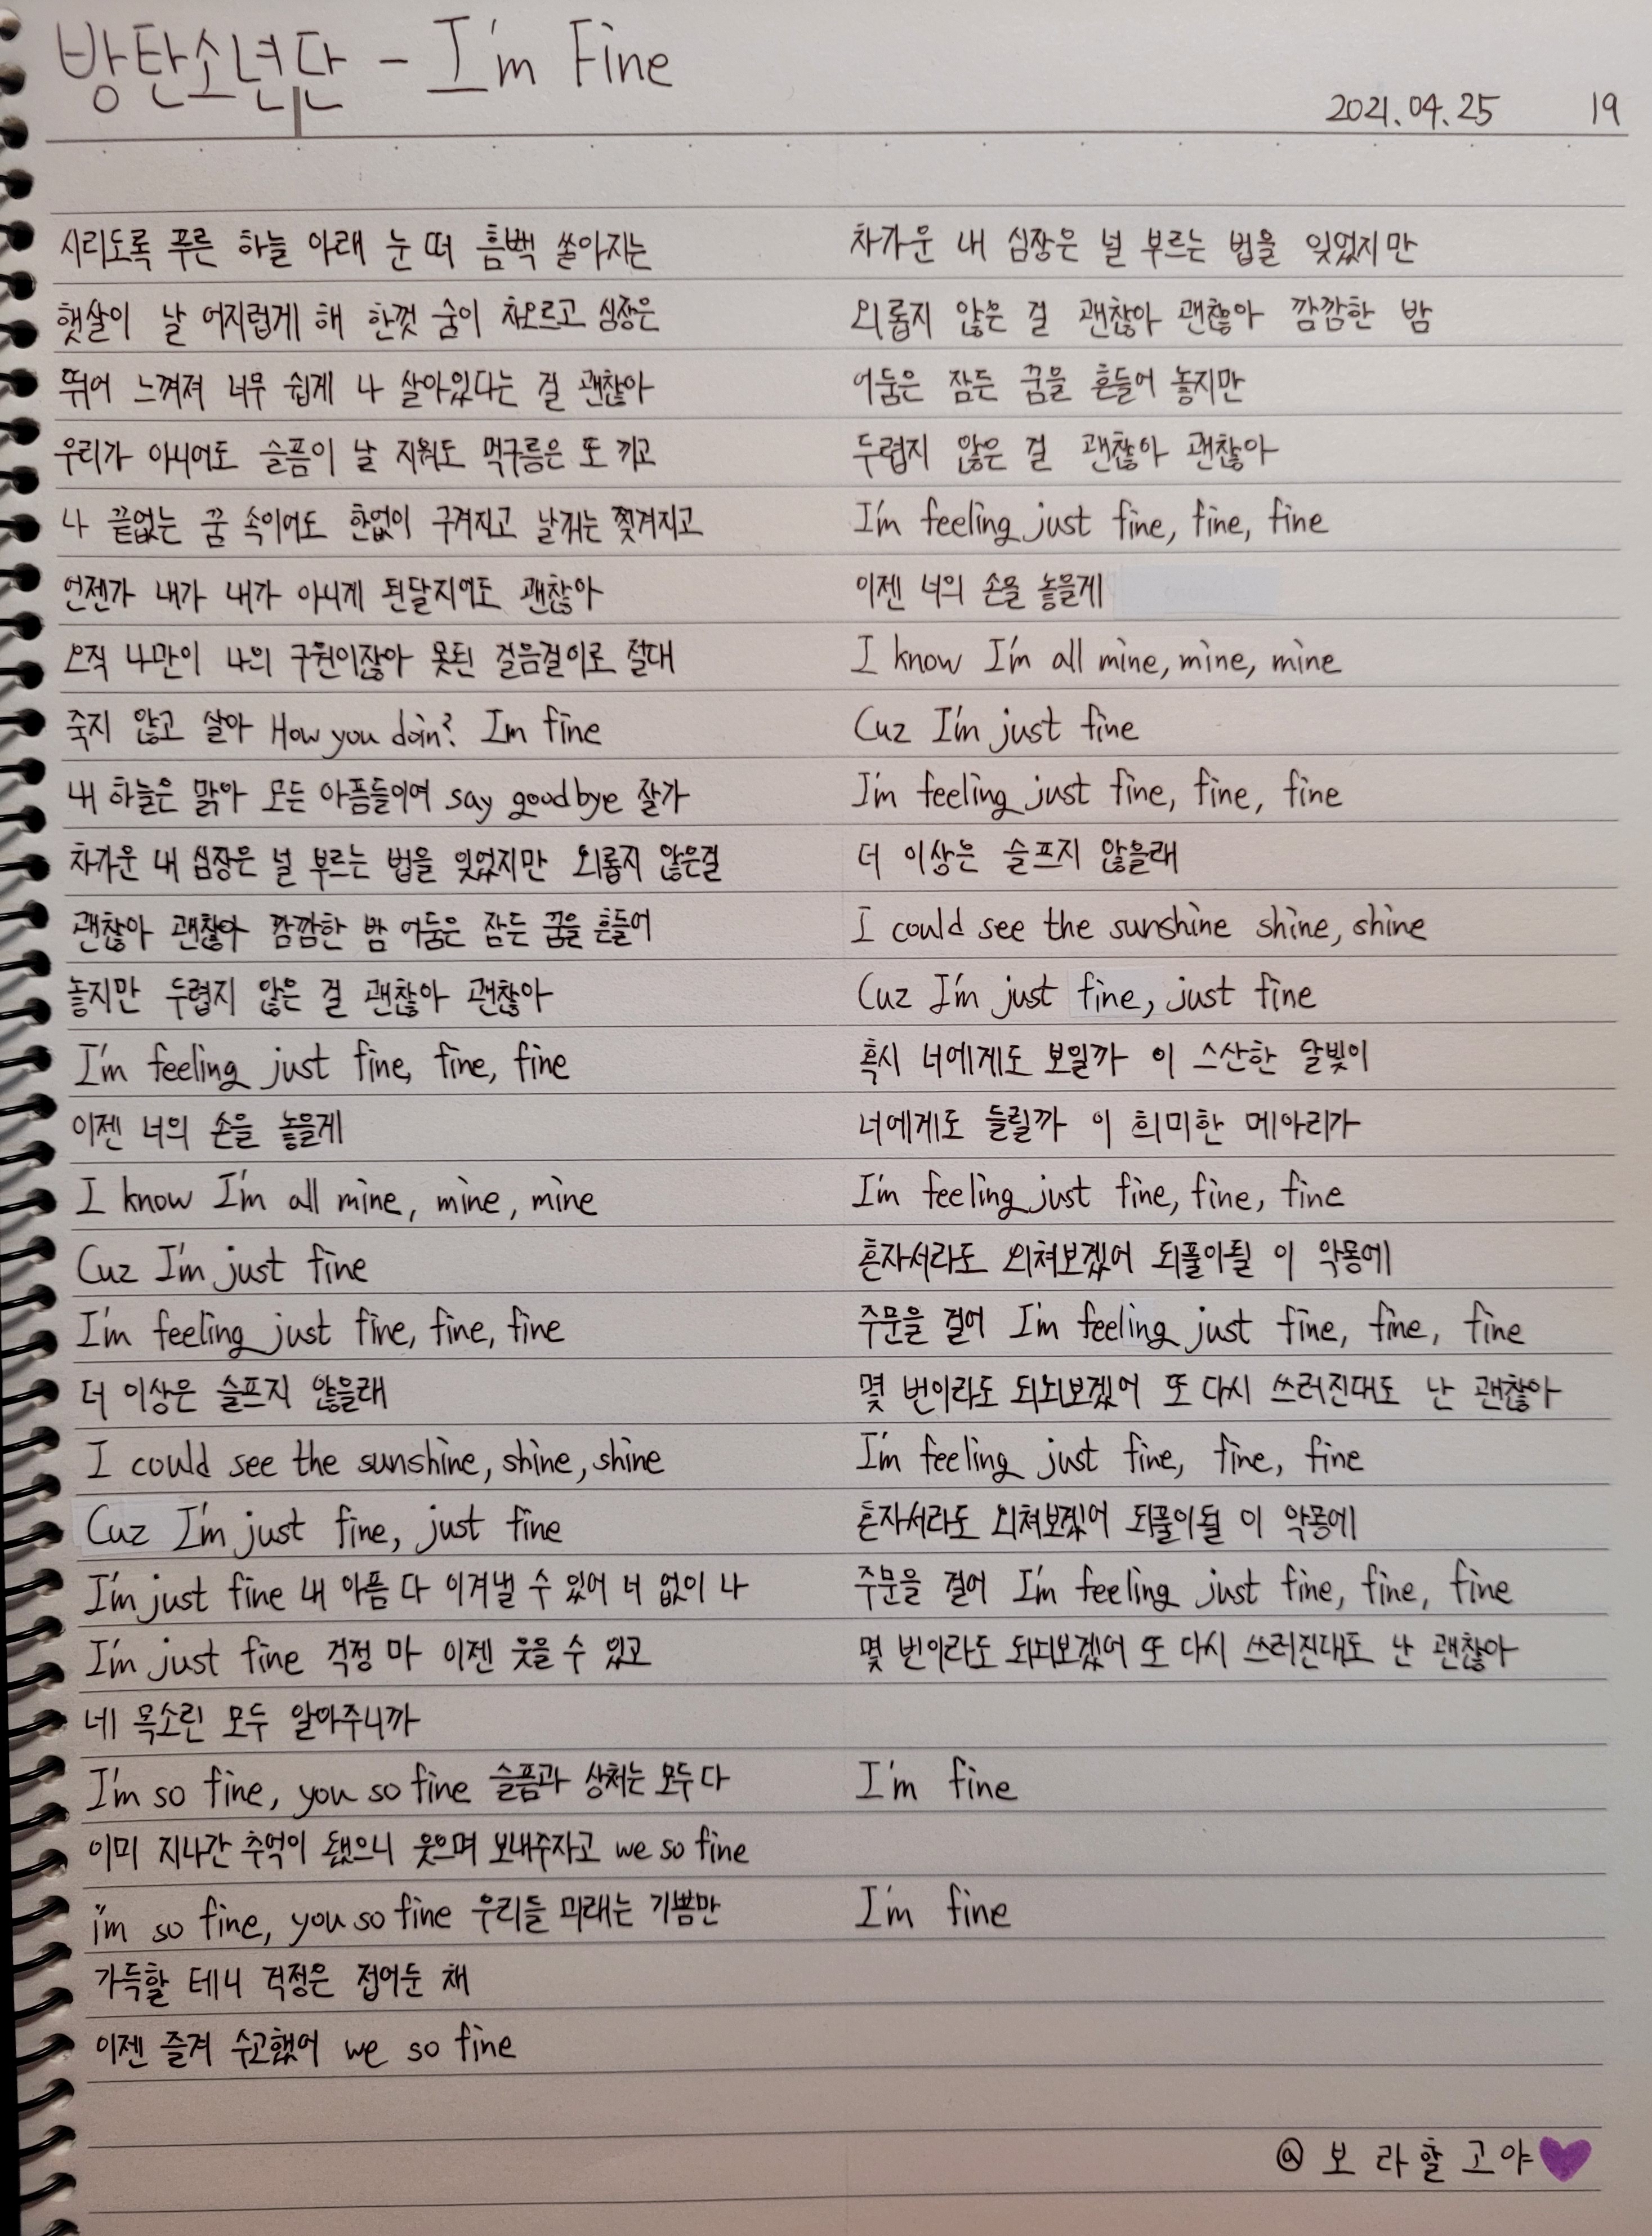 방탄소년단 - I'm Fine
2021.04.25 19
시리도록 푸른 하늘 아래 눈 떠 흠뻑 쏟아지는
햇살이 날 어지럽게 해 한껏 숨이 차오르고 심장은
뛰어 느껴져 너무 쉽게 나 살아있다는 걸 괜찮아
우리가 아니어도 슬픔이 날 지워도 먹구름은 또 끼고
나 끝없는 꿈 속이어도 한없이 구겨지고 날개는 찢겨지고
언젠가 내가 내가 아니게 된달지어도 괜찮아
오직 나만이 나의 구원이잖아 못된 걸음걸이로 절대
죽지 않고 살아 How you doin? Im fine
내 하늘은 맑아 모든 아픔들이여 say goodbye 잘가
차가운 내 심장은 널 부르는 법을 잊었지만 외롭지 않은걸
괜찮아 괜찮아 깜깜한 밤 어둠은 잠든 꿈을 흔들어
놓지만 두렵지 않은 걸 괜찮아 괜찮아
I'm feeling just fine, fine, fine
이젠 너의 손을 놓을게
I know I'm all mine, mine, mine
Cuz I'm just fine
I'm feeling just fine, fine, fine
더 이상은 슬프지 않을래
I could see the sunshine, shine, shine
Cuz I'm just fine, just fine
I'm just fine 내 아픔 다 이겨낼 수 있어 너 없이 나
I'm just fine 걱정 마 이젠 웃을 수 있고
네 목소린 모두 알아주니까
I'm so fine, you so fine 슬픔과 상처는 모두 다
이미 지나간 추억이 됐으니 웃으며 보내주자고 we so fine
i'm so fine, you so fine 우리들 미래는 기쁨만
가득할 테니 걱정은 접어둔 채
이젠 즐겨 수고했어 we so fine
차가운 내 심장은 널 부르는 법을 잊었지만
외롭지 않은 걸 괜찮아 괜찮아 깜깜한 밤
어둠은 잠든 꿈을 흔들어 놓지만
두렵지 않은 걸 괜찮아 괜찮아
I'm feeling just fine, fine, fine
이젠 너의 손을 놓을게
I know I'm all mine, mine, mine
Cuz I'm just fine
I'm feeling just fine, fine, fine
더 이상은 슬프지 않을래
I could see the sunshine shine, shine
Cuz I'm just fine, just fine
혹시 너에게도 보일까 이 스산한 달빛이
너에게도 들릴까 이 희미한 메아리가
I'm feeling just fine, fine, fine
혼자서라도 외쳐보겠어 되풀이될 이 악몽에
주문을 걸어 I'm feeling just fine, fine, fine
몇 번이라도 되뇌보겠어 또 다시 쓰러진대도 난 괜찮아
I'm feeling just fine, fine, fine
혼자서라도 외쳐보겠어 되풀이될 이 악몽에
주문을 걸어 I'm feeling just fine, fine, fine
몇 번이라도 되뇌보겠어 또 다시 쓰러진대도 난 괜찮아
I'm fine
I'm fine
@보라할고야💜